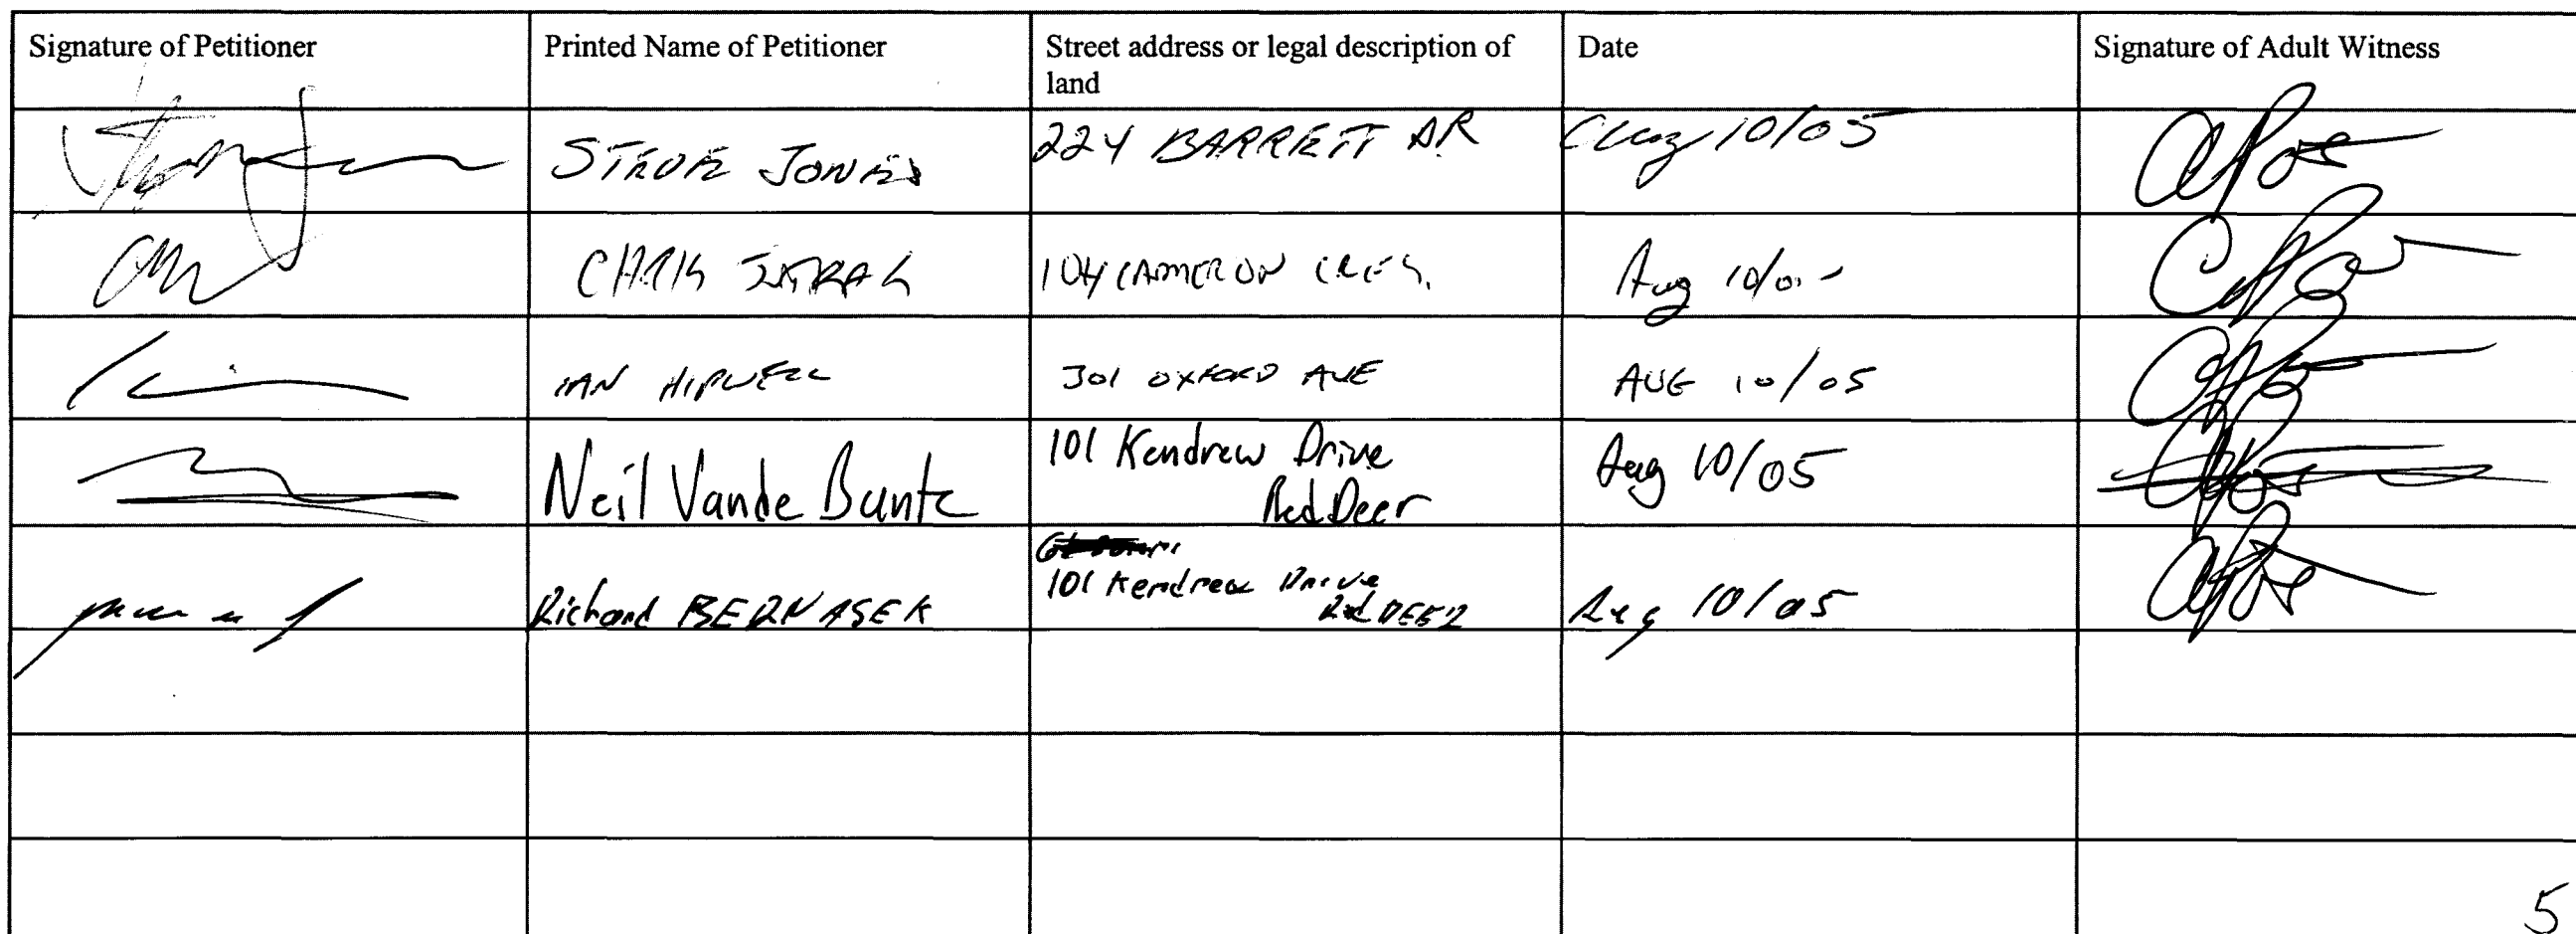 Signature of Petitioner
Printed Name of Petitioner
Street address or legal description of
land
Date
Signature of Adult Witness
STEVE JONES
224 BARRETT DR
Aug 10/05
CHRIS
104 CAMERON CRES.
Aug 10/0
IAN
301 OXFORD AVE
AUG 10/05
Neil Vande Bunte
101 Kendrew Drive
Red Deer
Aug 10/05
Richard BERNASEK
101 Kendrew Drive
Red DEER
Aug 10/05
5